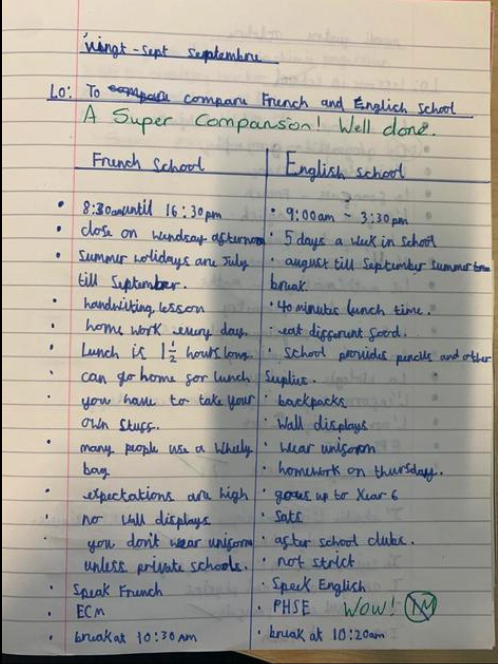 vingt-sept septembre
LO: To compare compare French and English school
A Super Comparison! Well done.
French School
English school
• 8:30am until 16:30pm
• close on wendsay afternoon
• Summer holidays are July
till September.
• handwriting lesson
• home work every day.
• Lunch is 1 1/2 hours long.
• can go home for lunch
• you have to take your
own stuff.
• many people use a wheely
bag
• expectations are high
• no wall displays
• you don't wear uniform
unless private schools.
• Speak French
• ECM
• break at 10:30am
• 9:00am ~ 3:30pm
• 5 days a week in school
• august till September summer
break.
• 40 minutes lunch time.
• eat different food.
• school provides pencils and other
suplies.
• backpacks
• wall displays
• wear uniform
• homework on thursday.
• goes up to Year 6
• Sats
• after school clubs.
• not strict
• Speek English
• PHSE WOW!
• break at 10:20am